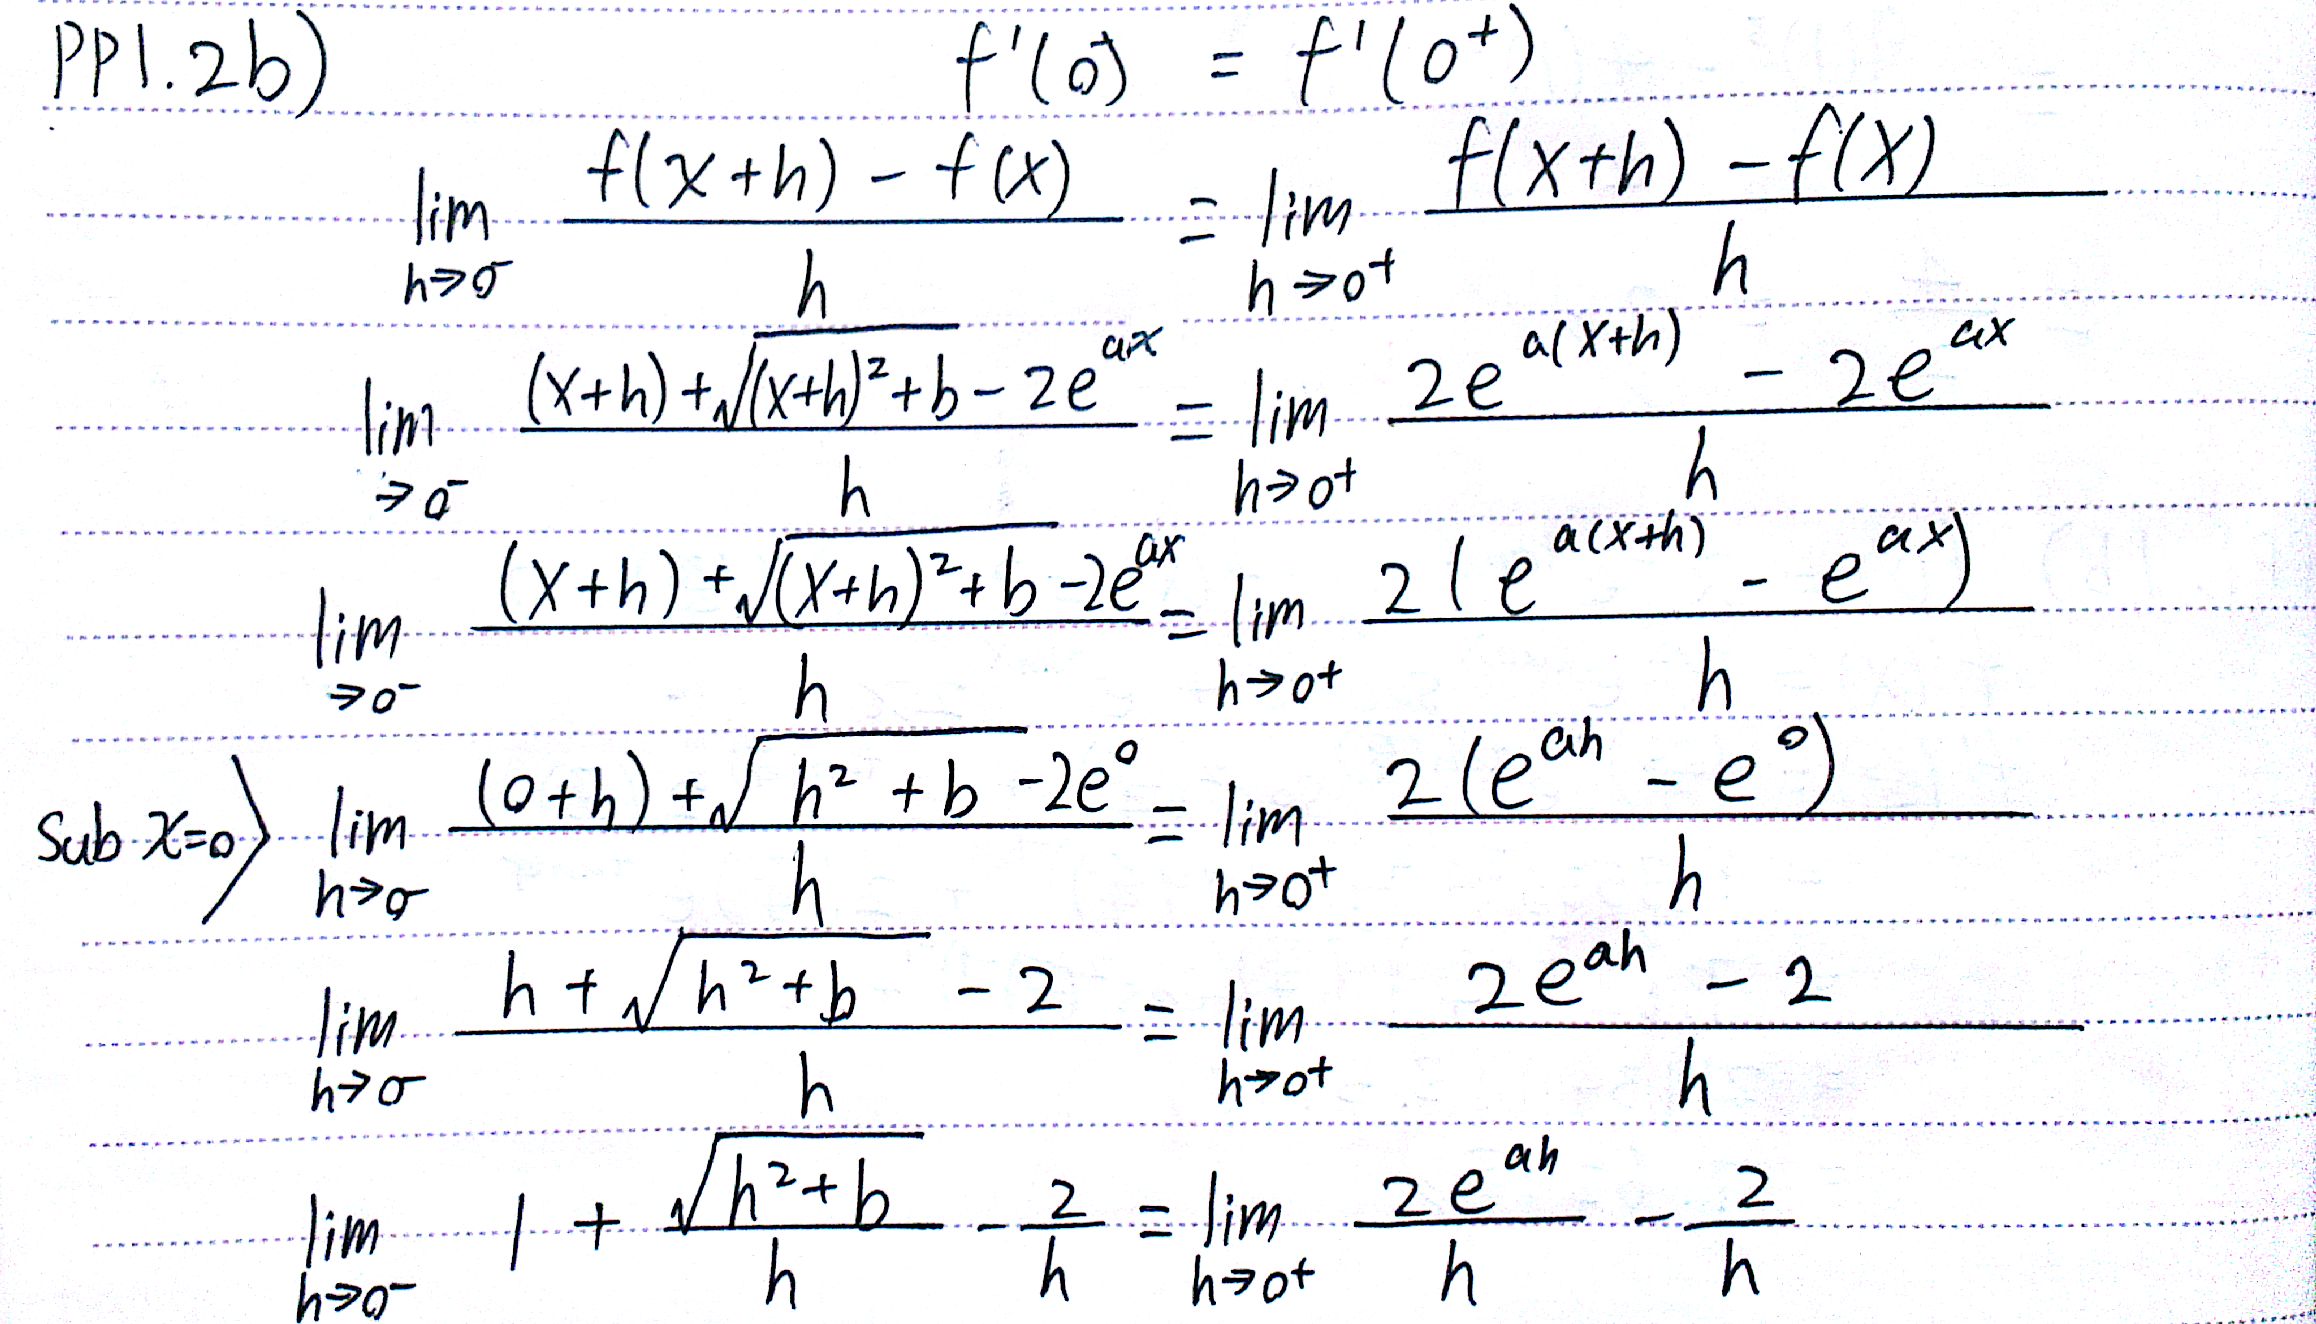 PP1.2b) f'(0⁻) = f'(0⁺)
lim h→0⁻ (f(x+h) - f(x))/h = lim h→0⁺ (f(x+h) - f(x))/h
lim →0⁻ ((x+h) + √((x+h)²+b) - 2e^(ax))/h = lim h→0⁺ (2e^(a(x+h)) - 2e^(ax))/h
lim →0⁻ ((x+h) + √((x+h)²+b) - 2e^(ax))/h = lim h→0⁺ 2(e^(a(x+h)) - e^(ax))/h
Sub x=0⟩ lim h→0⁻ ((0+h) + √(h²+b) - 2e⁰)/h = lim h→0⁺ 2(e^(ah) - e⁰)/h
lim h→0⁻ (h + √(h²+b) - 2)/h = lim h→0⁺ (2e^(ah) - 2)/h
lim h→0⁻ 1 + √(h²+b)/h - 2/h = lim h→0⁺ 2e^(ah)/h - 2/h